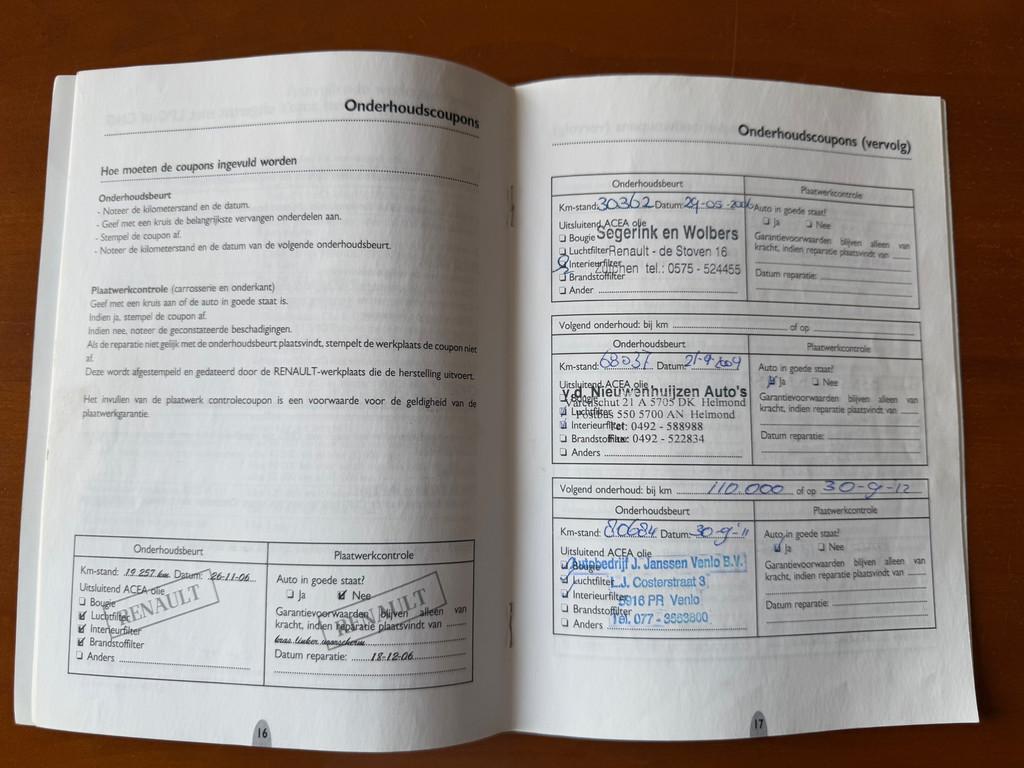 Onderhoudscoupons
Hoe moeten de coupons ingevuld worden
Onderhoudsbeurt
- Noteer de kilometerstand en de datum.
- Geef met een kruis de belangrijkste vervangen onderdelen aan.
- Stempel de coupon af.
- Noteer de kilometerstand en de datum van de volgende onderhoudsbeurt.
Plaatwerkcontrole (carrosserie en onderkant)
Geef met een kruis aan of de auto in goede staat is.
Indien ja, stempel de coupon af.
Indien nee, noteer de geconstateerde beschadigingen.
Als de reparatie niet gelijk met de onderhoudsbeurt plaatsvindt, stempelt de werkplaats de coupon niet
af.
Deze wordt afgestempeld en gedateerd door de RENAULT-werkplaats die de herstelling uitvoert.
Het invullen van de plaatwerk controlecoupon is een voorwaarde voor de geldigheid van de
plaatwerkgarantie.
Onderhoudsbeurt
Km-stand: 19 257 km Datum: 26-11-06
Uitsluitend ACEA olie
Bougie
Luchtfilter
Interieurfilter
Brandstoffilter
Anders
RENAULT
Plaatwerkcontrole
Auto in goede staat?
Ja Nee
Garantievoorwaarden blijven alleen van
kracht, indien reparatie plaatsvindt van
kras linker voorscherm
Datum reparatie: 18-12-06
RENAULT
16
Onderhoudscoupons (vervolg)
Onderhoudsbeurt
Km-stand: 30362 Datum: 29-05-2006
Uitsluitend ACEA olie
Bougie
Luchtfilter
Interieurfilter
Brandstoffilter
Ander
Segerink en Wolbers
Renault - de Stoven 16
Zutphen tel.: 0575 - 524455
Plaatwerkcontrole
Auto in goede staat?
Ja Nee
Garantievoorwaarden blijven alleen van
kracht, indien reparatie plaatsvindt van
Datum reparatie:
Volgend onderhoud: bij km of op
Onderhoudsbeurt
Km-stand: 68037 Datum: 21-9-2009
Uitsluitend ACEA olie
Bougie
Luchtfilter
Interieurfilter
Brandstoffilter
Anders
v.d. Nieuwenhuijzen Auto's
Varenschut 21 A 5705 DK Helmond
Postbus 550 5700 AN Helmond
Tel: 0492 - 588988
Fax: 0492 - 522834
Plaatwerkcontrole
Auto in goede staat?
Ja Nee
Garantievoorwaarden blijven alleen van
kracht, indien reparatie plaatsvindt van
Datum reparatie:
Volgend onderhoud: bij km 110.000 of op 30-9-12
Onderhoudsbeurt
Km-stand: 80684 Datum: 30-9-'11
Uitsluitend ACEA olie
Bougie
Luchtfilter
Interieurfilter
Brandstoffilter
Anders
Autobedrijf J. Janssen Venlo B.V.
L.J. Costerstraat 3
5916 PR Venlo
Tel. 077 - 3563800
Plaatwerkcontrole
Auto in goede staat?
Ja Nee
Garantievoorwaarden blijven alleen van
kracht, indien reparatie plaatsvindt van
Datum reparatie:
17